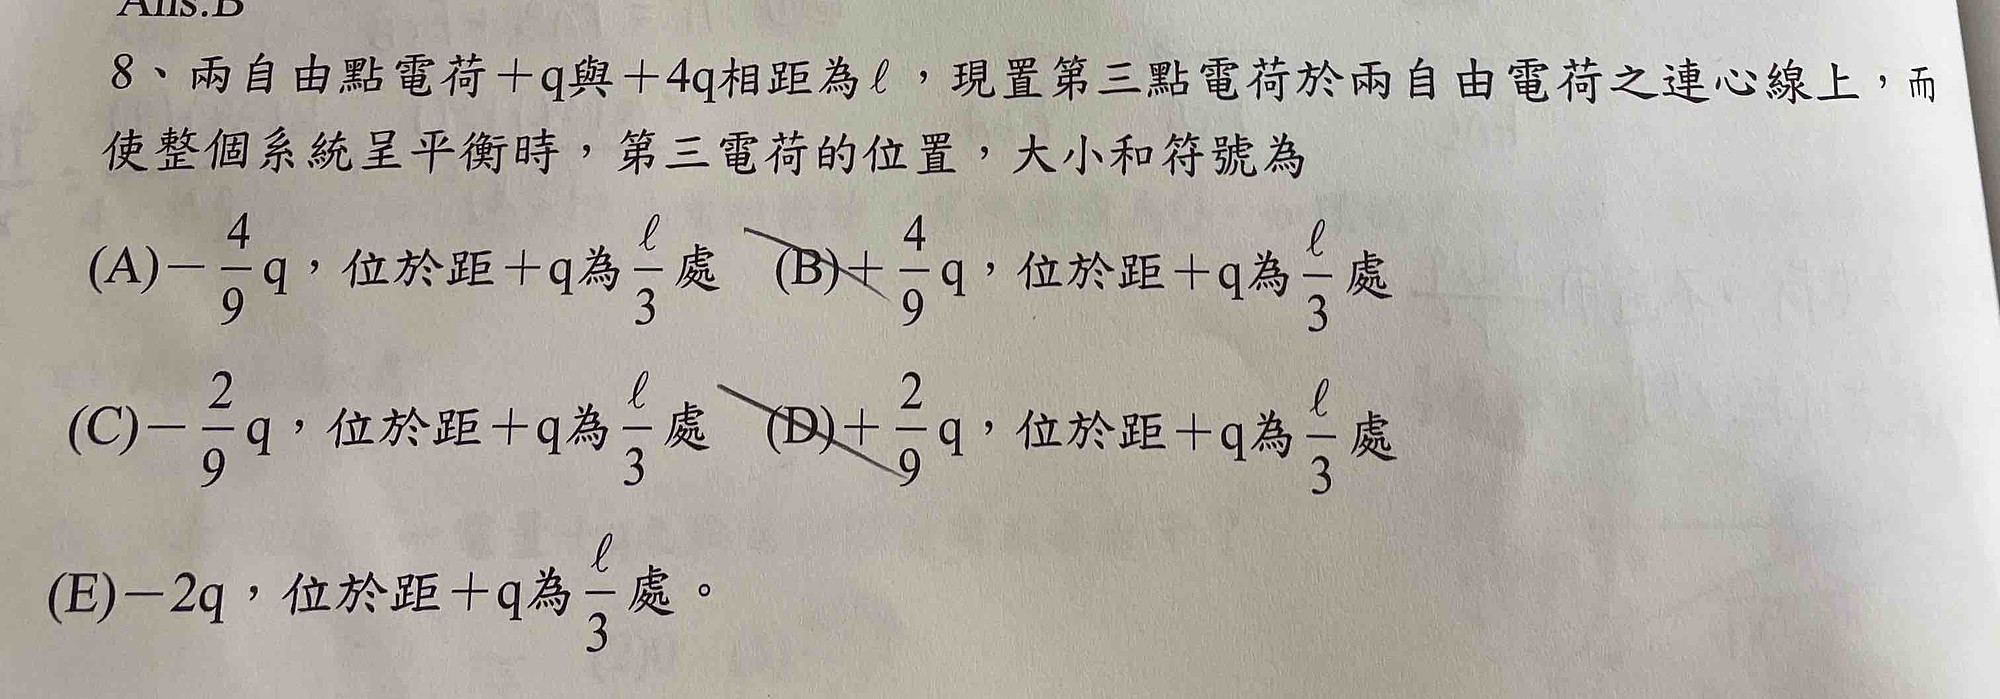 Ans.B
8、兩自由點電荷＋q與＋4q相距為ℓ，現置第三點電荷於兩自由電荷之連心線上，而
使整個系統呈平衡時，第三電荷的位置，大小和符號為
(A)－4/9 q，位於距＋q為ℓ/3處 (B)＋4/9 q，位於距＋q為ℓ/3處
(C)－2/9 q，位於距＋q為ℓ/3處 (D)＋2/9 q，位於距＋q為ℓ/3處
(E)－2q，位於距＋q為ℓ/3處。